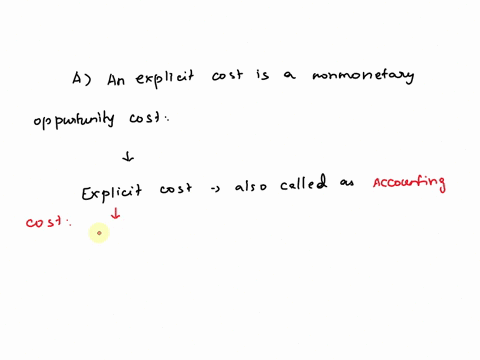 A) An explicit cost is a nonmonetary
oppurtunity cost:
↓
Explicit cost → also called as Accounting
cost: ↓